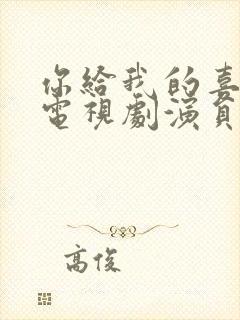 你給我的喜
電視劇演員
高俊